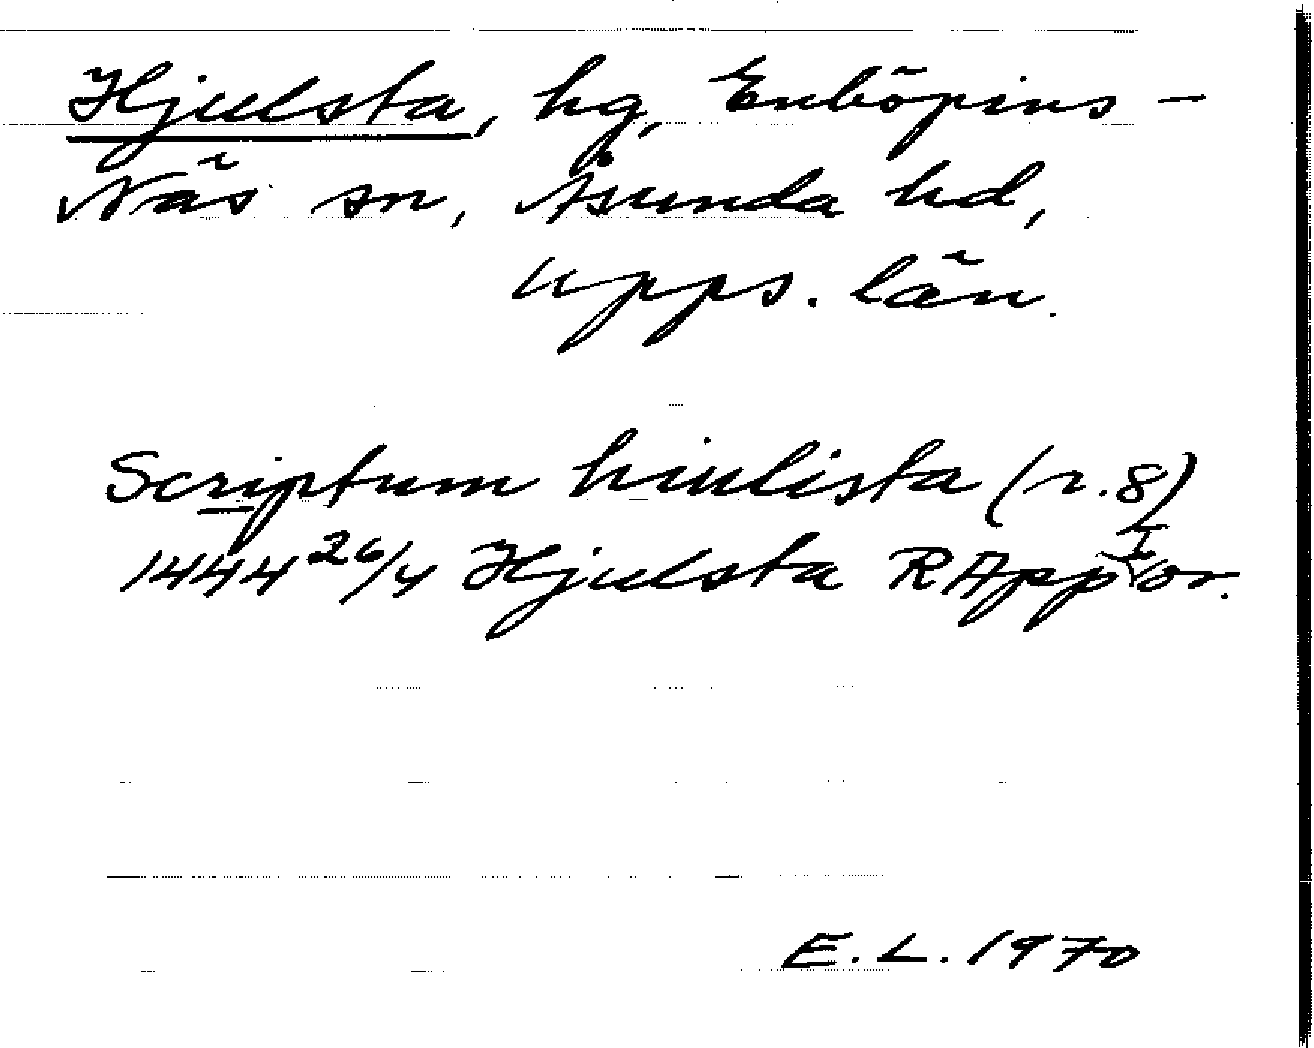 Hjulsta, hg, Enköpins-
Näs sn, Åsunda hd,
Upps. län.
Scriptum hiulista (r. 8)
1444 26/4 Hjulsta RApp or.
E.L. 1970